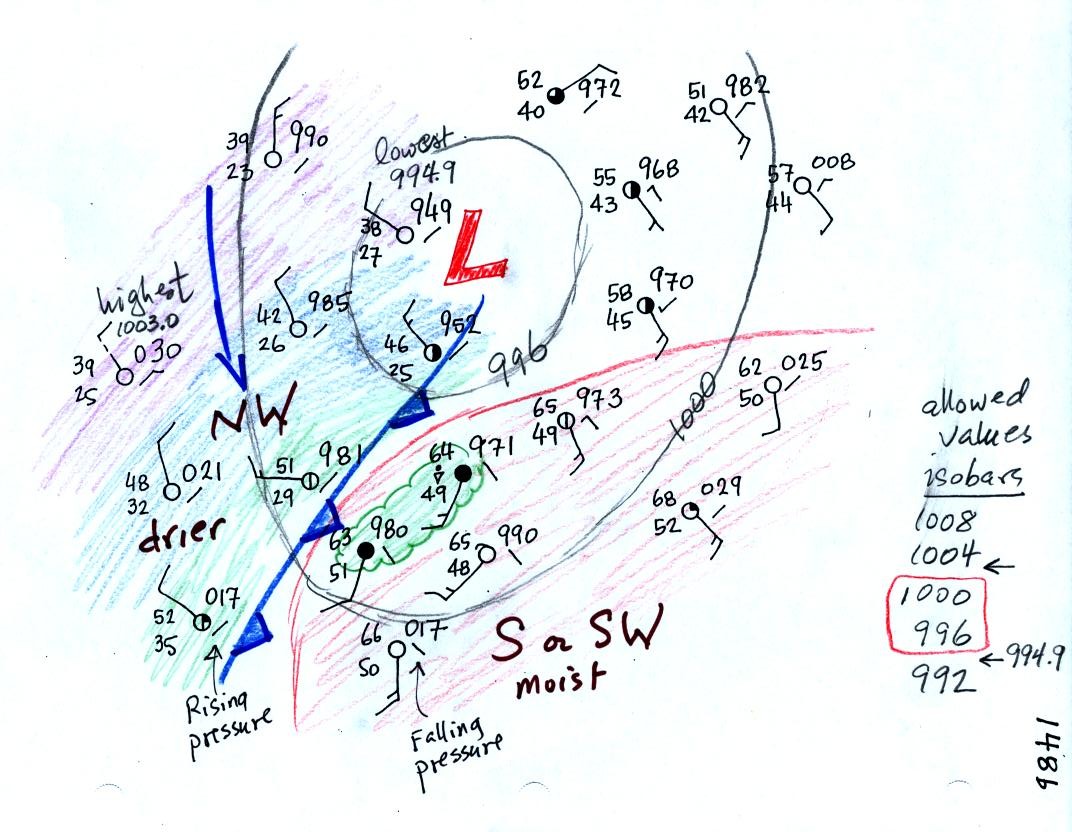 52
972
40
51
982
42
39
990
23
lowest
994.9
949
38
27
55
968
43
57
008
44
L
highest
1003.0
39
030
25
42
985
26
46
952
25
58
970
45
996
62
025
50
1000
NW
65
973
49
64
971
49
51
981
29
48
021
32
drier
68
029
52
63
980
51
65
990
48
52
017
35
66
017
50
S or SW
moist
Rising
pressure
Falling
pressure
allowed
values
isobars
1008
1004 ←
1000
996
← 994.9
992
1486